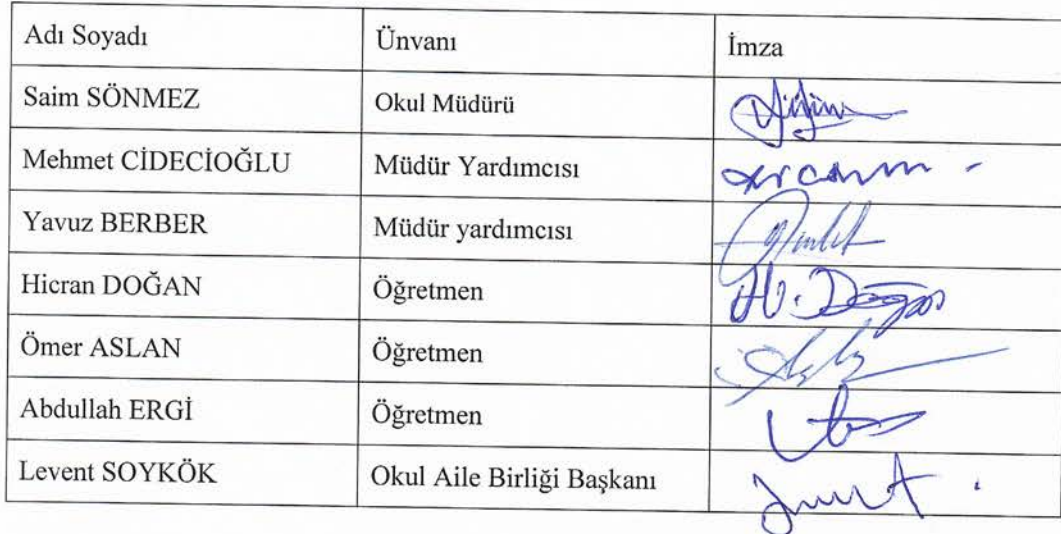 Adı Soyadı Ünvanı İmza
Saim SÖNMEZ Okul Müdürü
Mehmet CİDECİOĞLU Müdür Yardımcısı
Yavuz BERBER Müdür yardımcısı
Hicran DOĞAN Öğretmen H. Doğan
Ömer ASLAN Öğretmen
Abdullah ERGİ Öğretmen
Levent SOYKÖK Okul Aile Birliği Başkanı